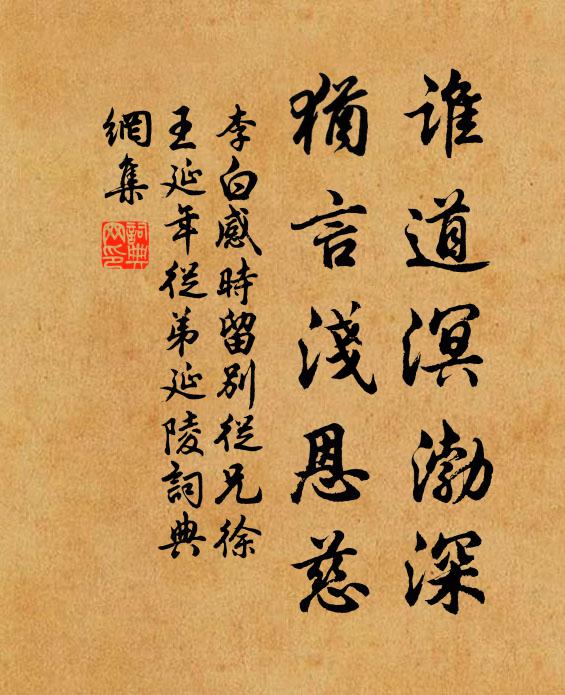 誰道溟渤深
猶言淺恩慈
李白感時留別從兄徐
王延年從弟延陵詞典
網集
詞典
网印